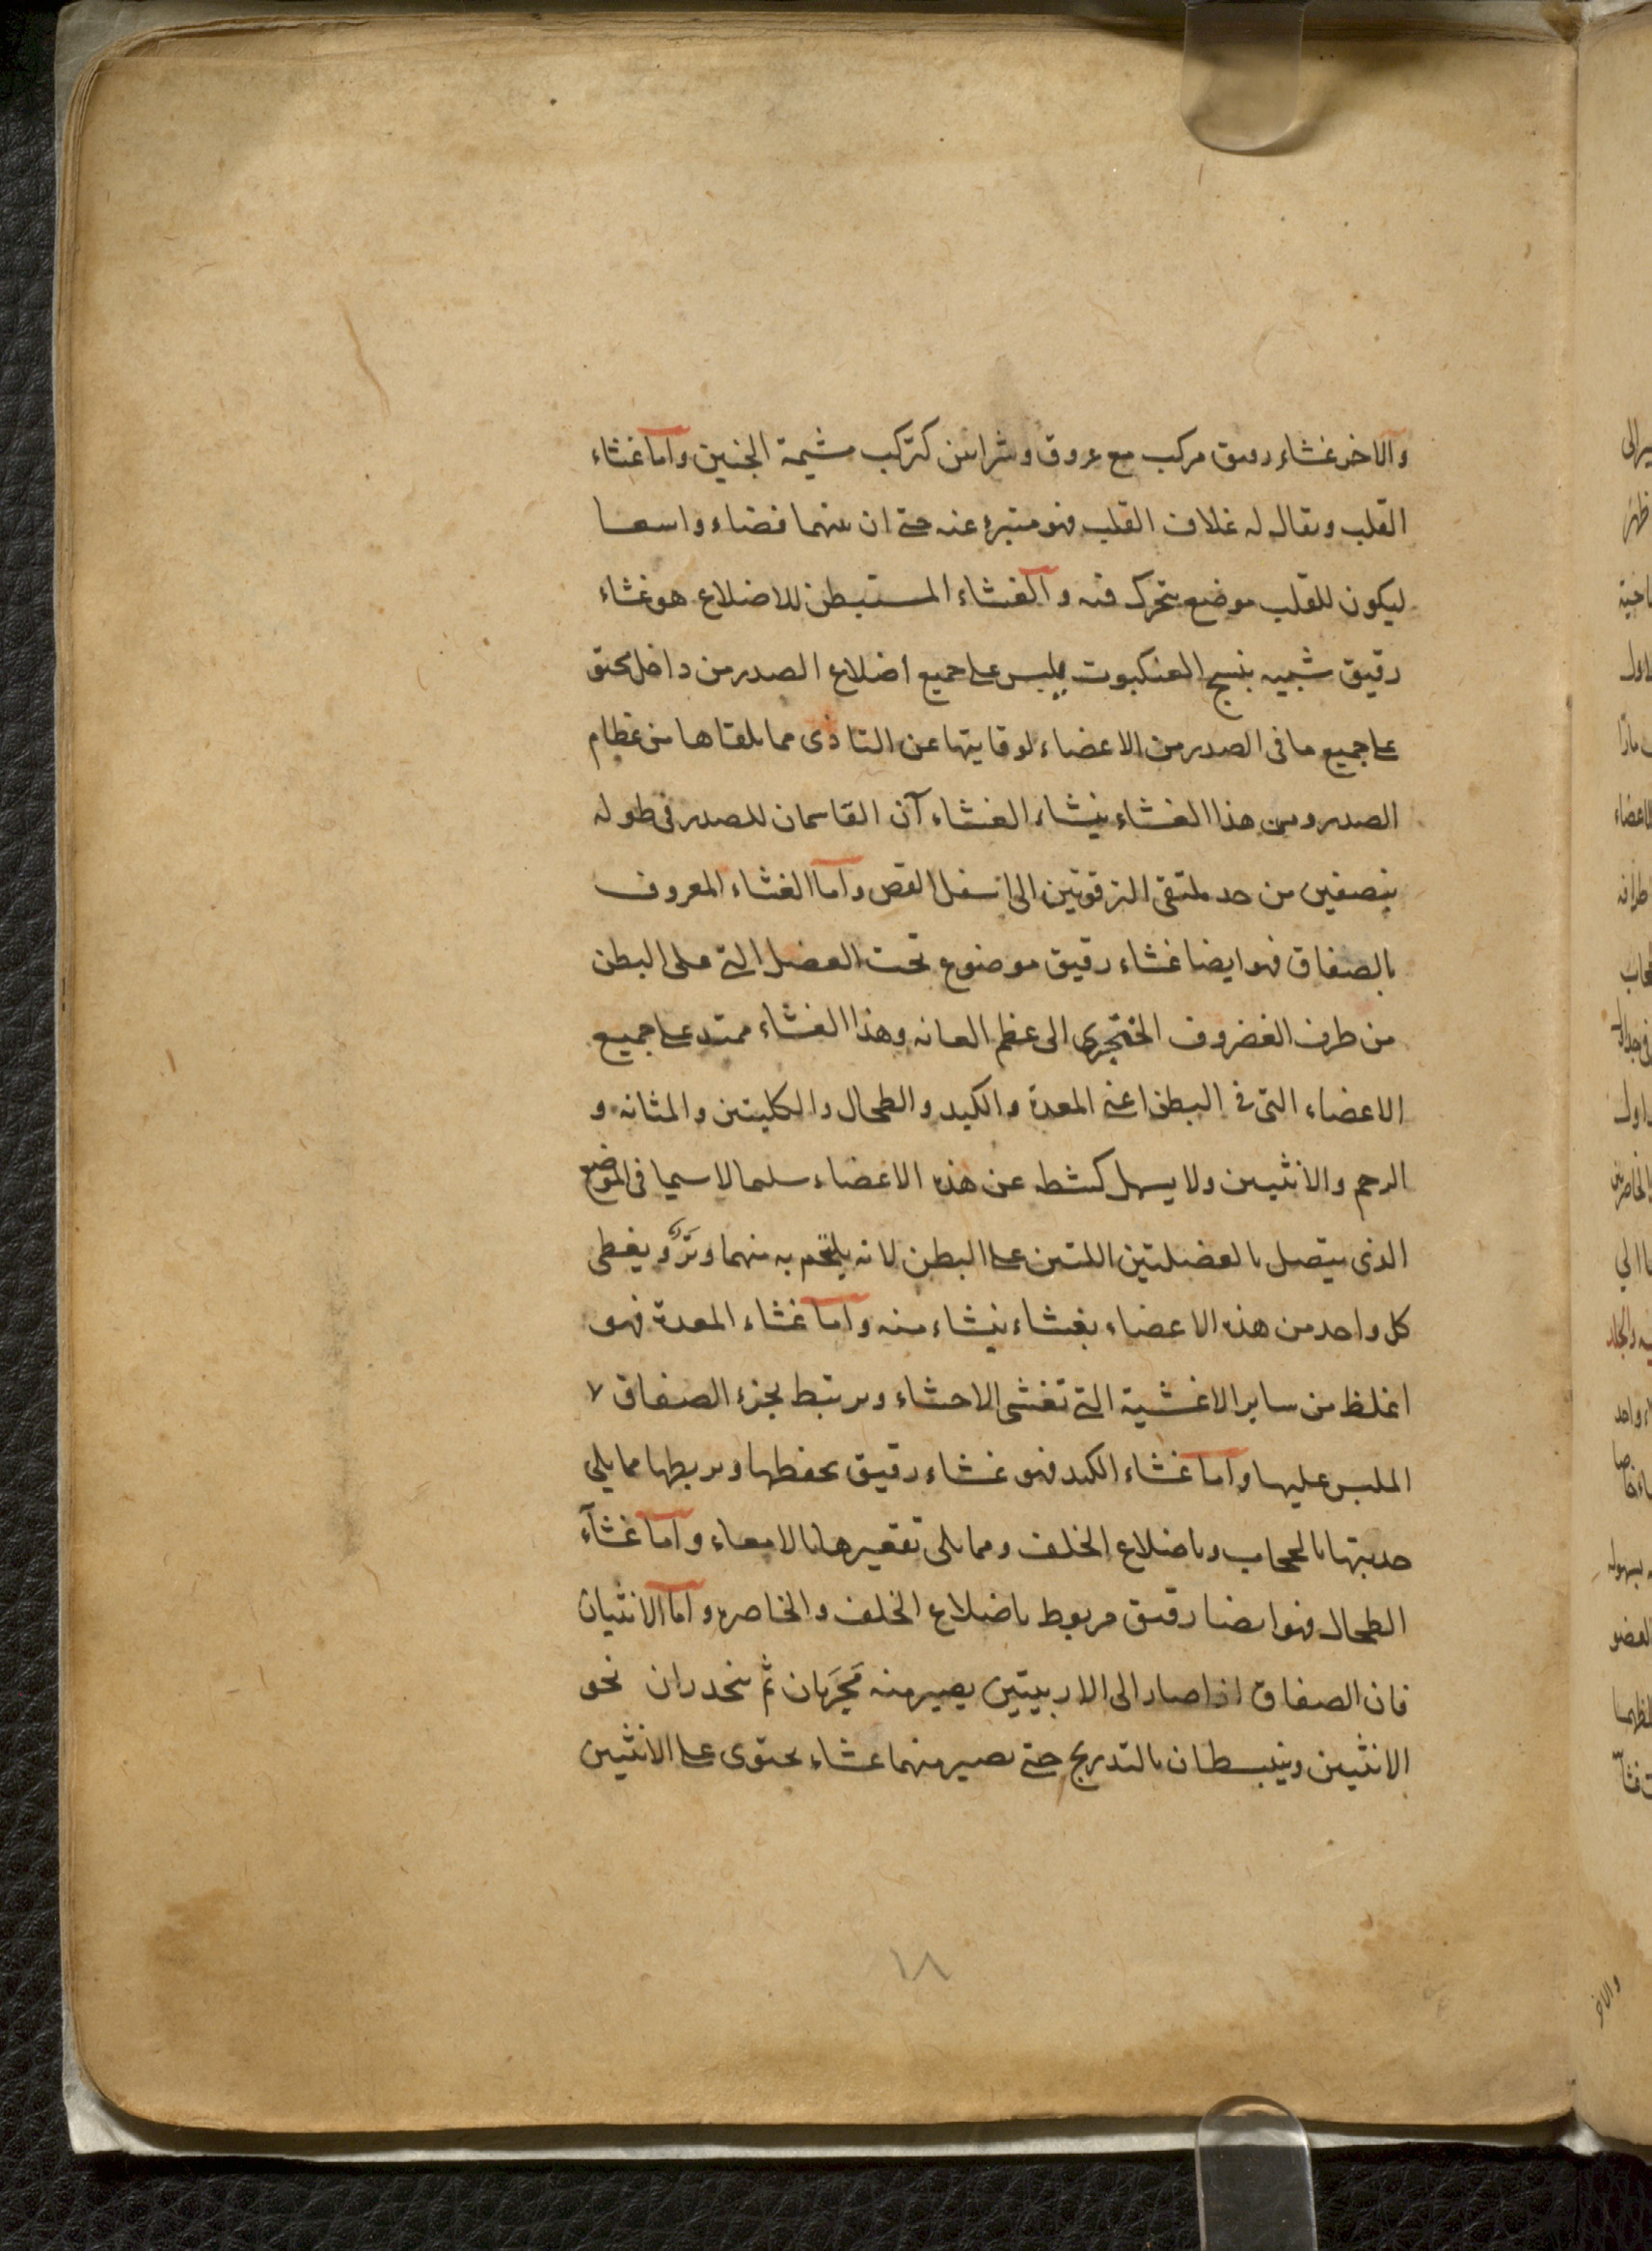 والاخر غشاء رقيق مركب مع عروق وشرايين كتركب مشيمة الجنين واما غشاء
القلب ويقال له غلاف القلب فهو متبرء عنه حتى ان بينهما فضاء واسعا
ليكون للقلب موضع يتحرك فيه والغشاء المستبطن للاضلاع هو غشاء
رقيق شبيه بنسج العنكبوت يلبس على جميع اضلاع الصدر من داخل يحتوى
على جميع ما فى الصدر من الاعضاء لوقايتها عن التاذى مما يلقاها من عظام
الصدر ومن هذا الغشاء ينشاء الغشاء آن القاسمان للصدر فى طوله
بنصفين من حد ملتقى الترقوتين الى اسفل القص واما الغشاء المعروف
بالصفاق فهو ايضا غشاء رقيق موضوع تحت العضل التى على البطن
من طرف الغضروف الخنجرى الى عظم العانه وهذا الغشاء ممتد على جميع
الاعضاء التى فى البطن اعنى المعدة والكبد والطحال والكليتين والمثانه و
الرحم والانثيين ولا يسهل كشطه عن هذه الاعضاء سلما لاسيما فى الموضع
الذى يتصل بالعضلتين اللتين على البطن لانه يلتحم به منهما وتر و يغطى
كل واحد من هذه الاعضاء بغشاء ينشاء منه واما غشاء المعدة فهو
اغلظ من ساير الاغشية التى تغشى الاحشاء ويرتبط بجزء الصفاق
الملبس عليها واما غشاء الكبد فهو غشاء رقيق يحفظها ويربطها مما يلى
حدبتها بالحجاب وباضلاع الخلف ومما يلى تقعيرها بالامعاء واما غشآء
الطحال فهو ايضا رقيق مربوط باضلاع الخلف والخاصره واما الانثيان
فان الصفاق اذا صار الى الاربيتين يصير منه مَجرَيان ثم ينحدران نحو
الانثيين وينبسطان بالتدريج حتى يصير منهما غشاء يحتوى على الانثيين
١٨